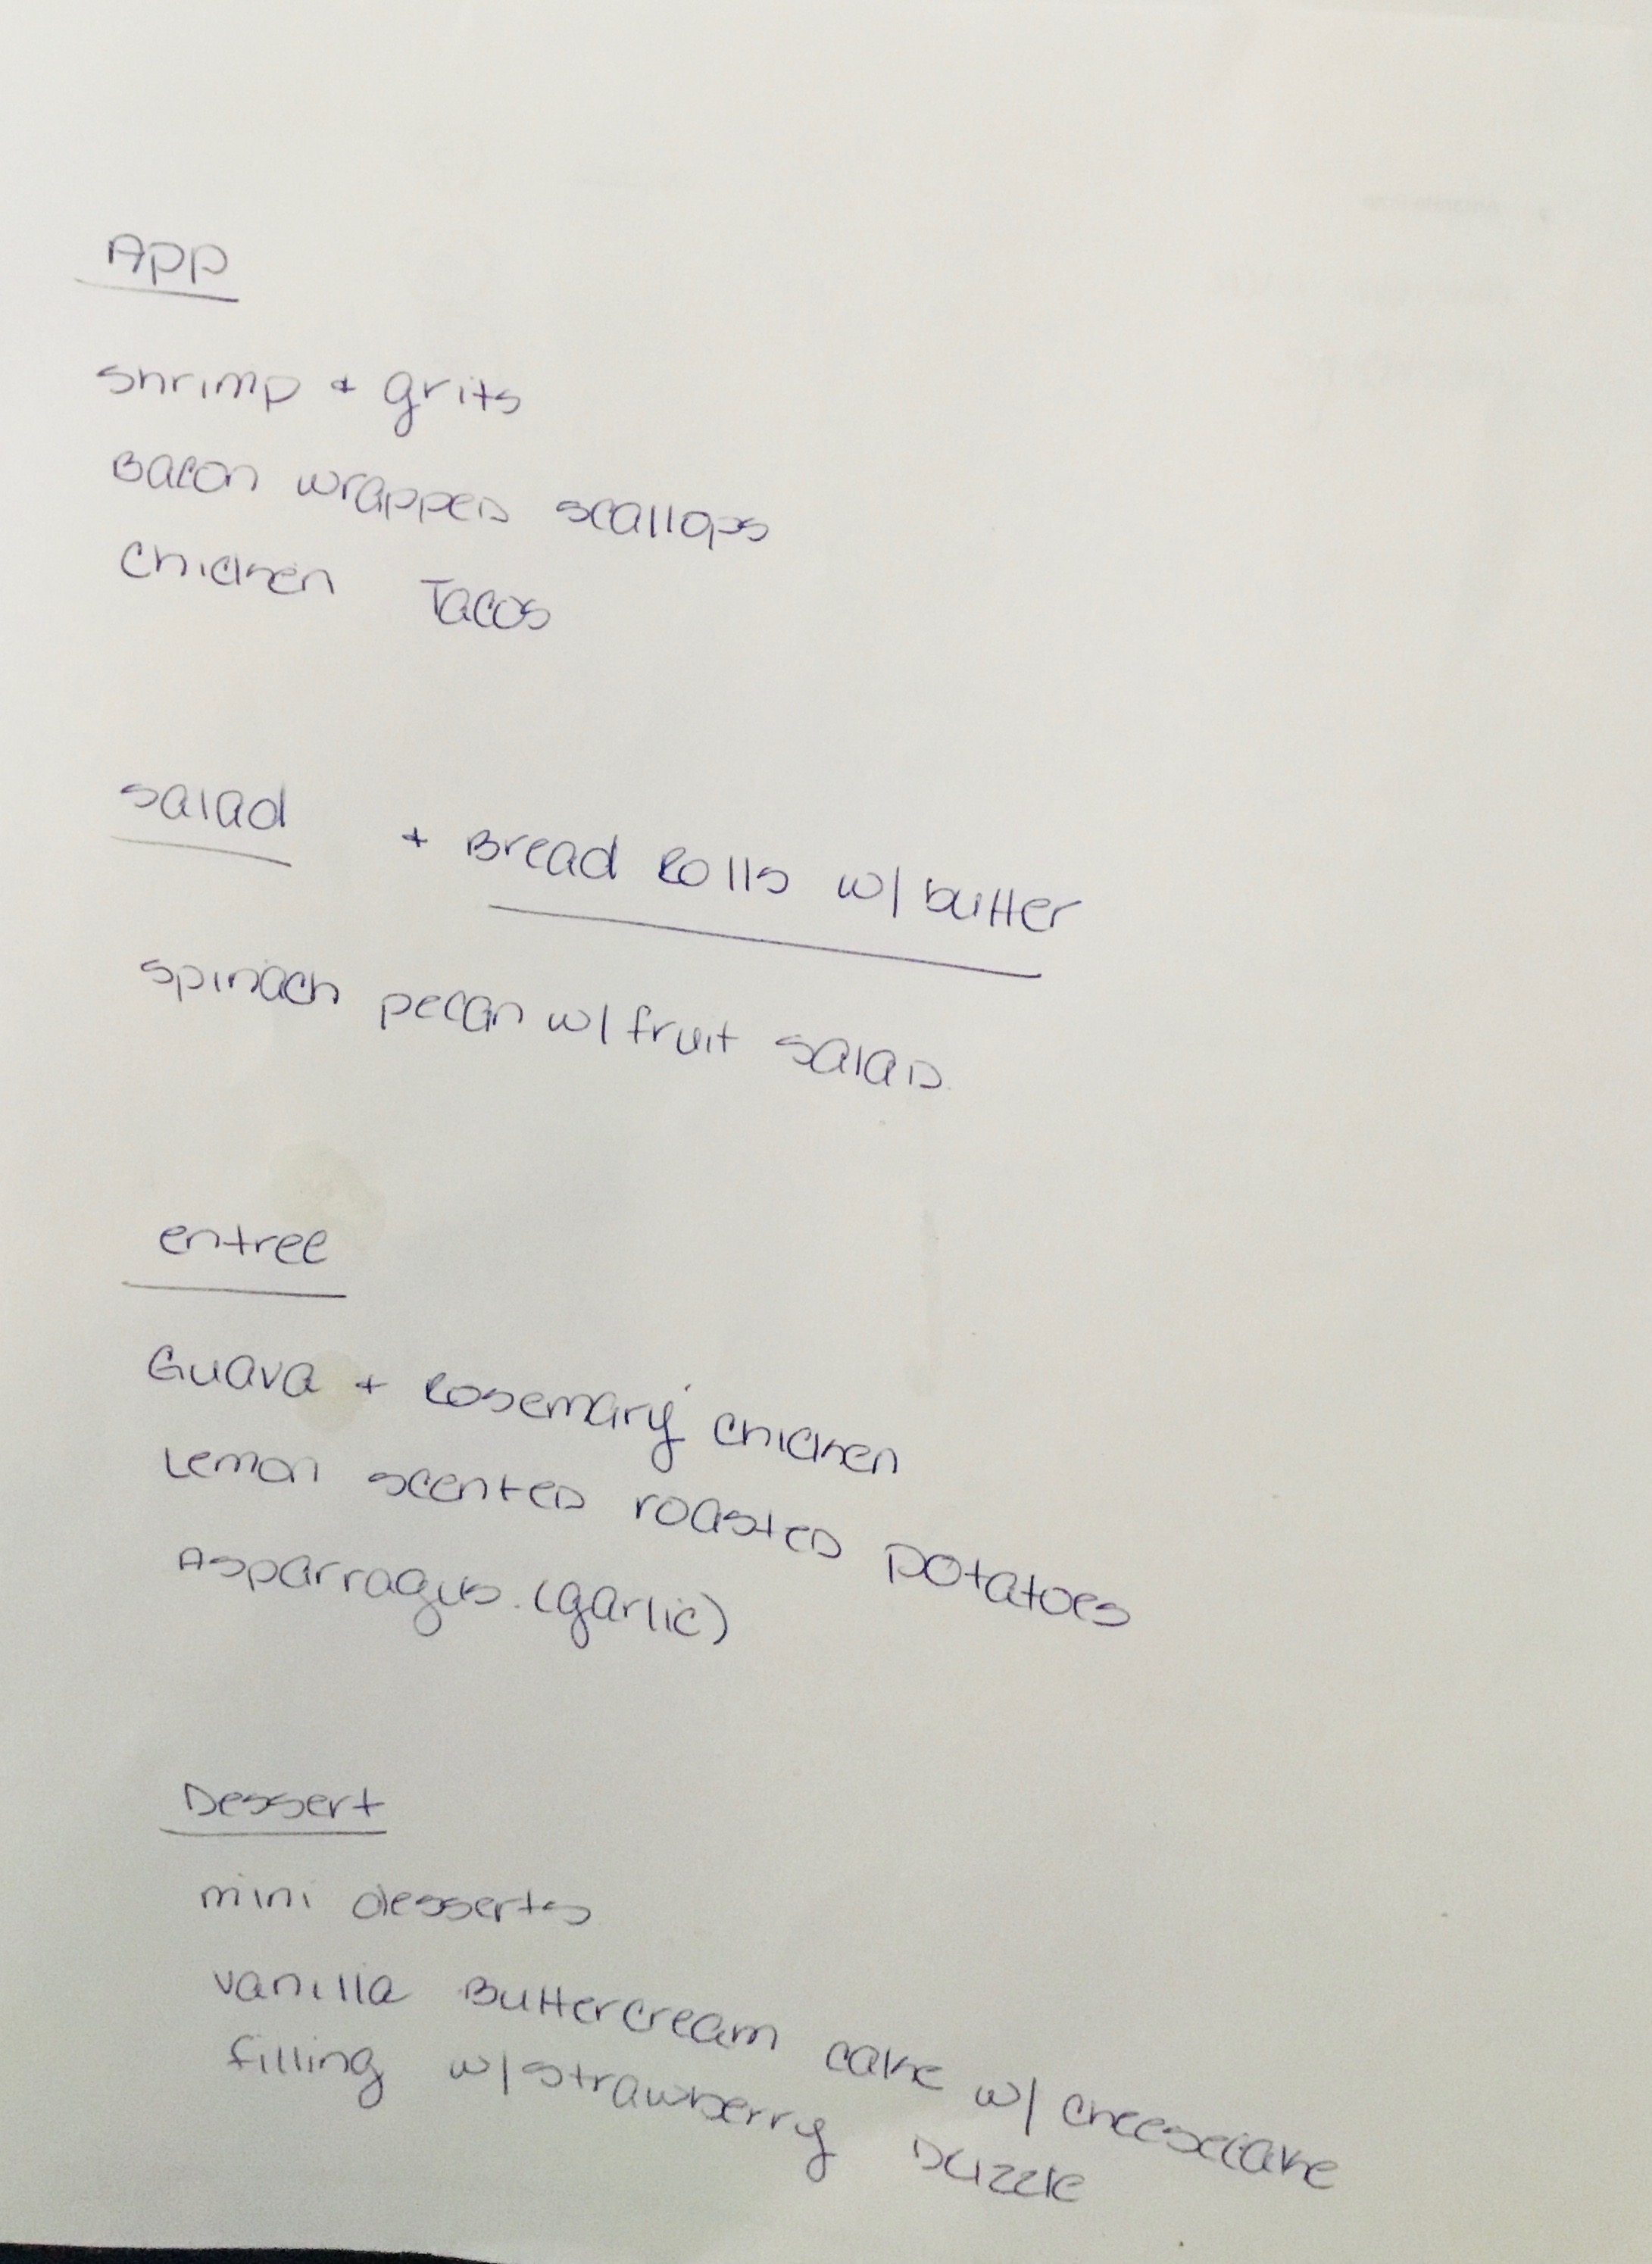 App
Shrimp + grits
Bacon wrapped scallops
Chicken Tacos
Salad + Bread Rolls w/ butter
Spinach pecan w/ fruit salad
entree
Guava + Rosemary chicken
Lemon scented roasted potatoes
Asparragus. (garlic)
Dessert
mini desserts
vanilla Buttercream cake w/ cheesecake
filling w/ strawberry Drizzle